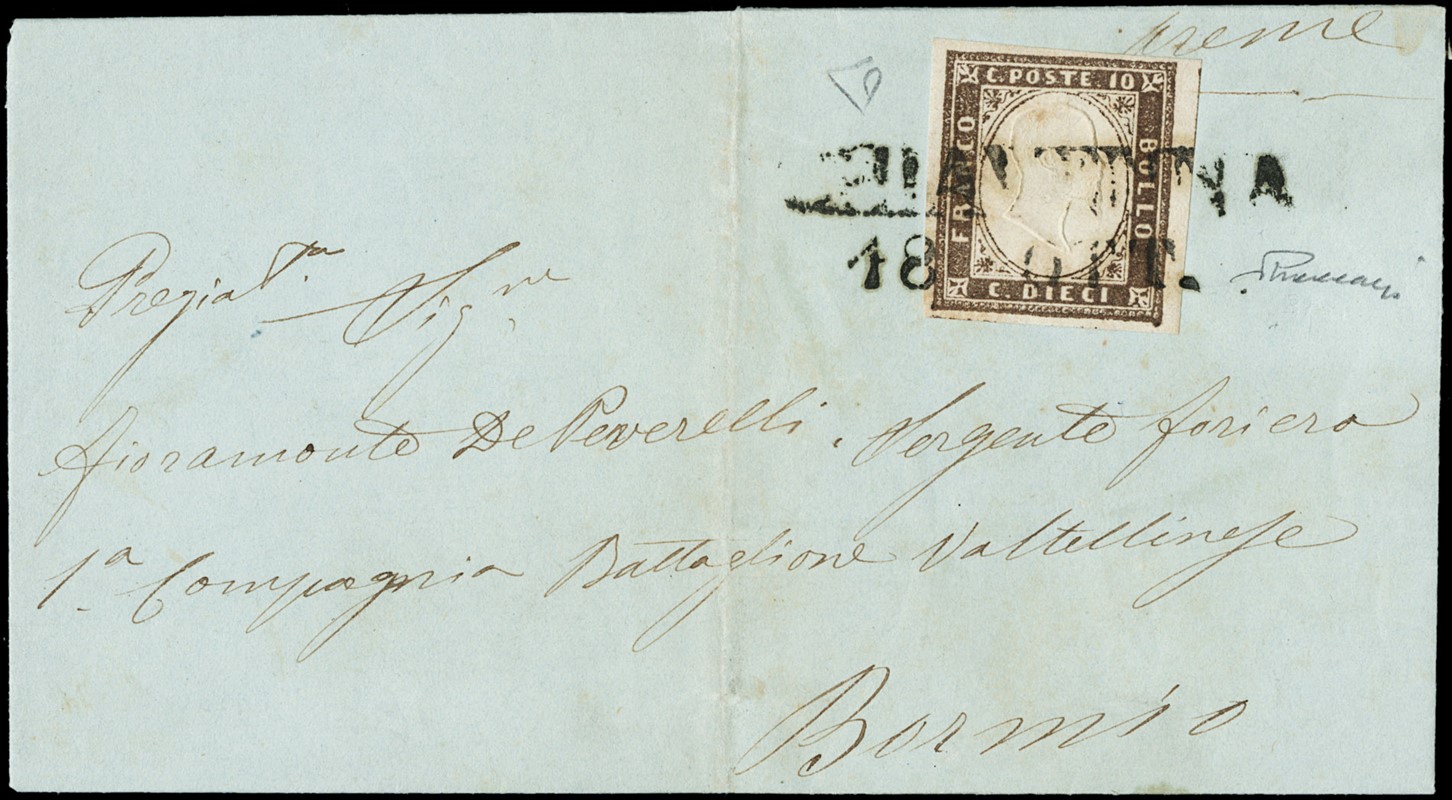 C. POSTE 10
FRANCO
BOLLO
C. DIECI
18 OTT.
Pregiat.mo Sig.re
Fioramonte De Peverelli. Sergente foriero
1.a Compagnia Battaglione Valtellinese
Bormio